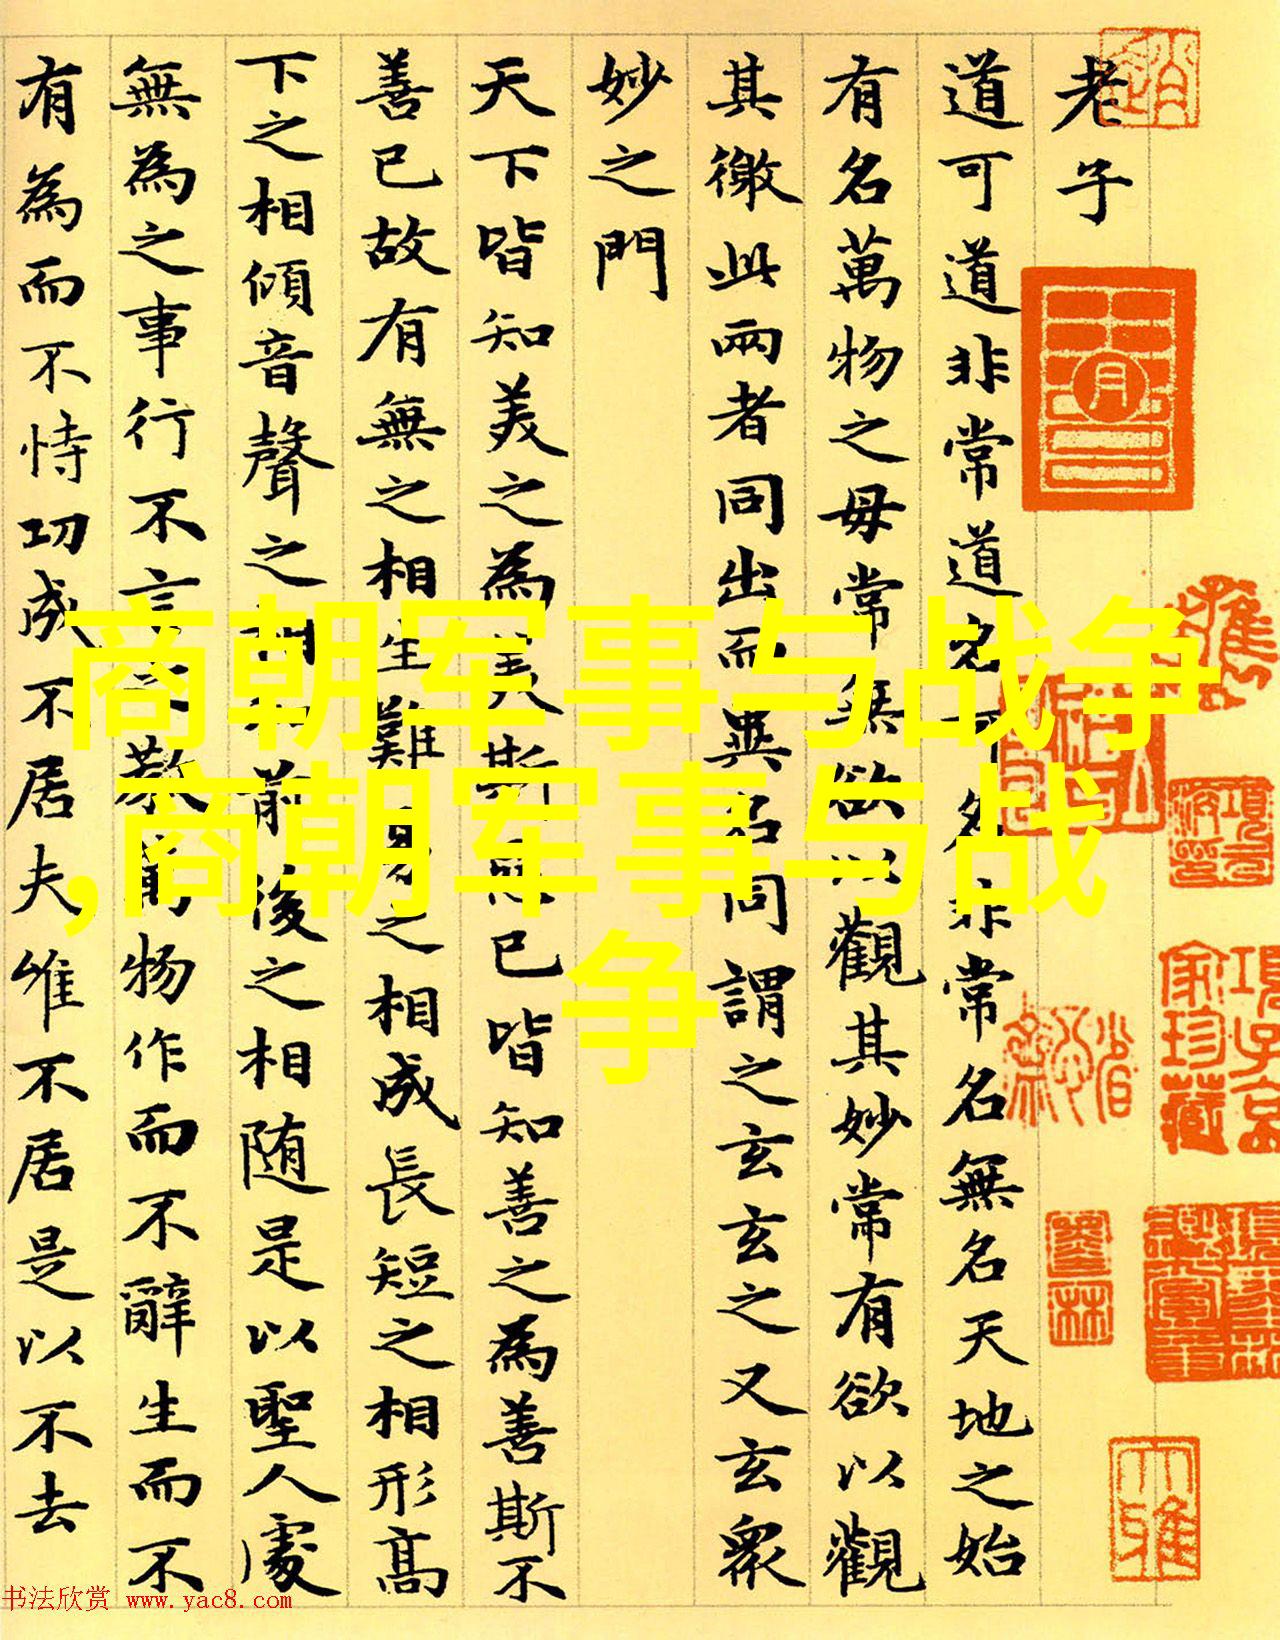 老子
道可道非常道名可名非常名無名天地之始
有名萬物之母常無欲以觀其妙常有欲以觀
其徼此兩者同出而異名同謂之玄玄之又玄眾
妙之門
天下皆知美之為美斯惡已皆知善之為善斯不
善已故有無之相生難易之相成長短之相形高
下之相傾音聲之相和前後之相随是以聖人處
無為之事行不言之教萬物作而不辭生而不
有為而不恃功成不居夫唯不居是以不去
商朝军事与战争
,商朝军事与战
争
項子京
家珍藏
书法欣赏 www.yac8.com